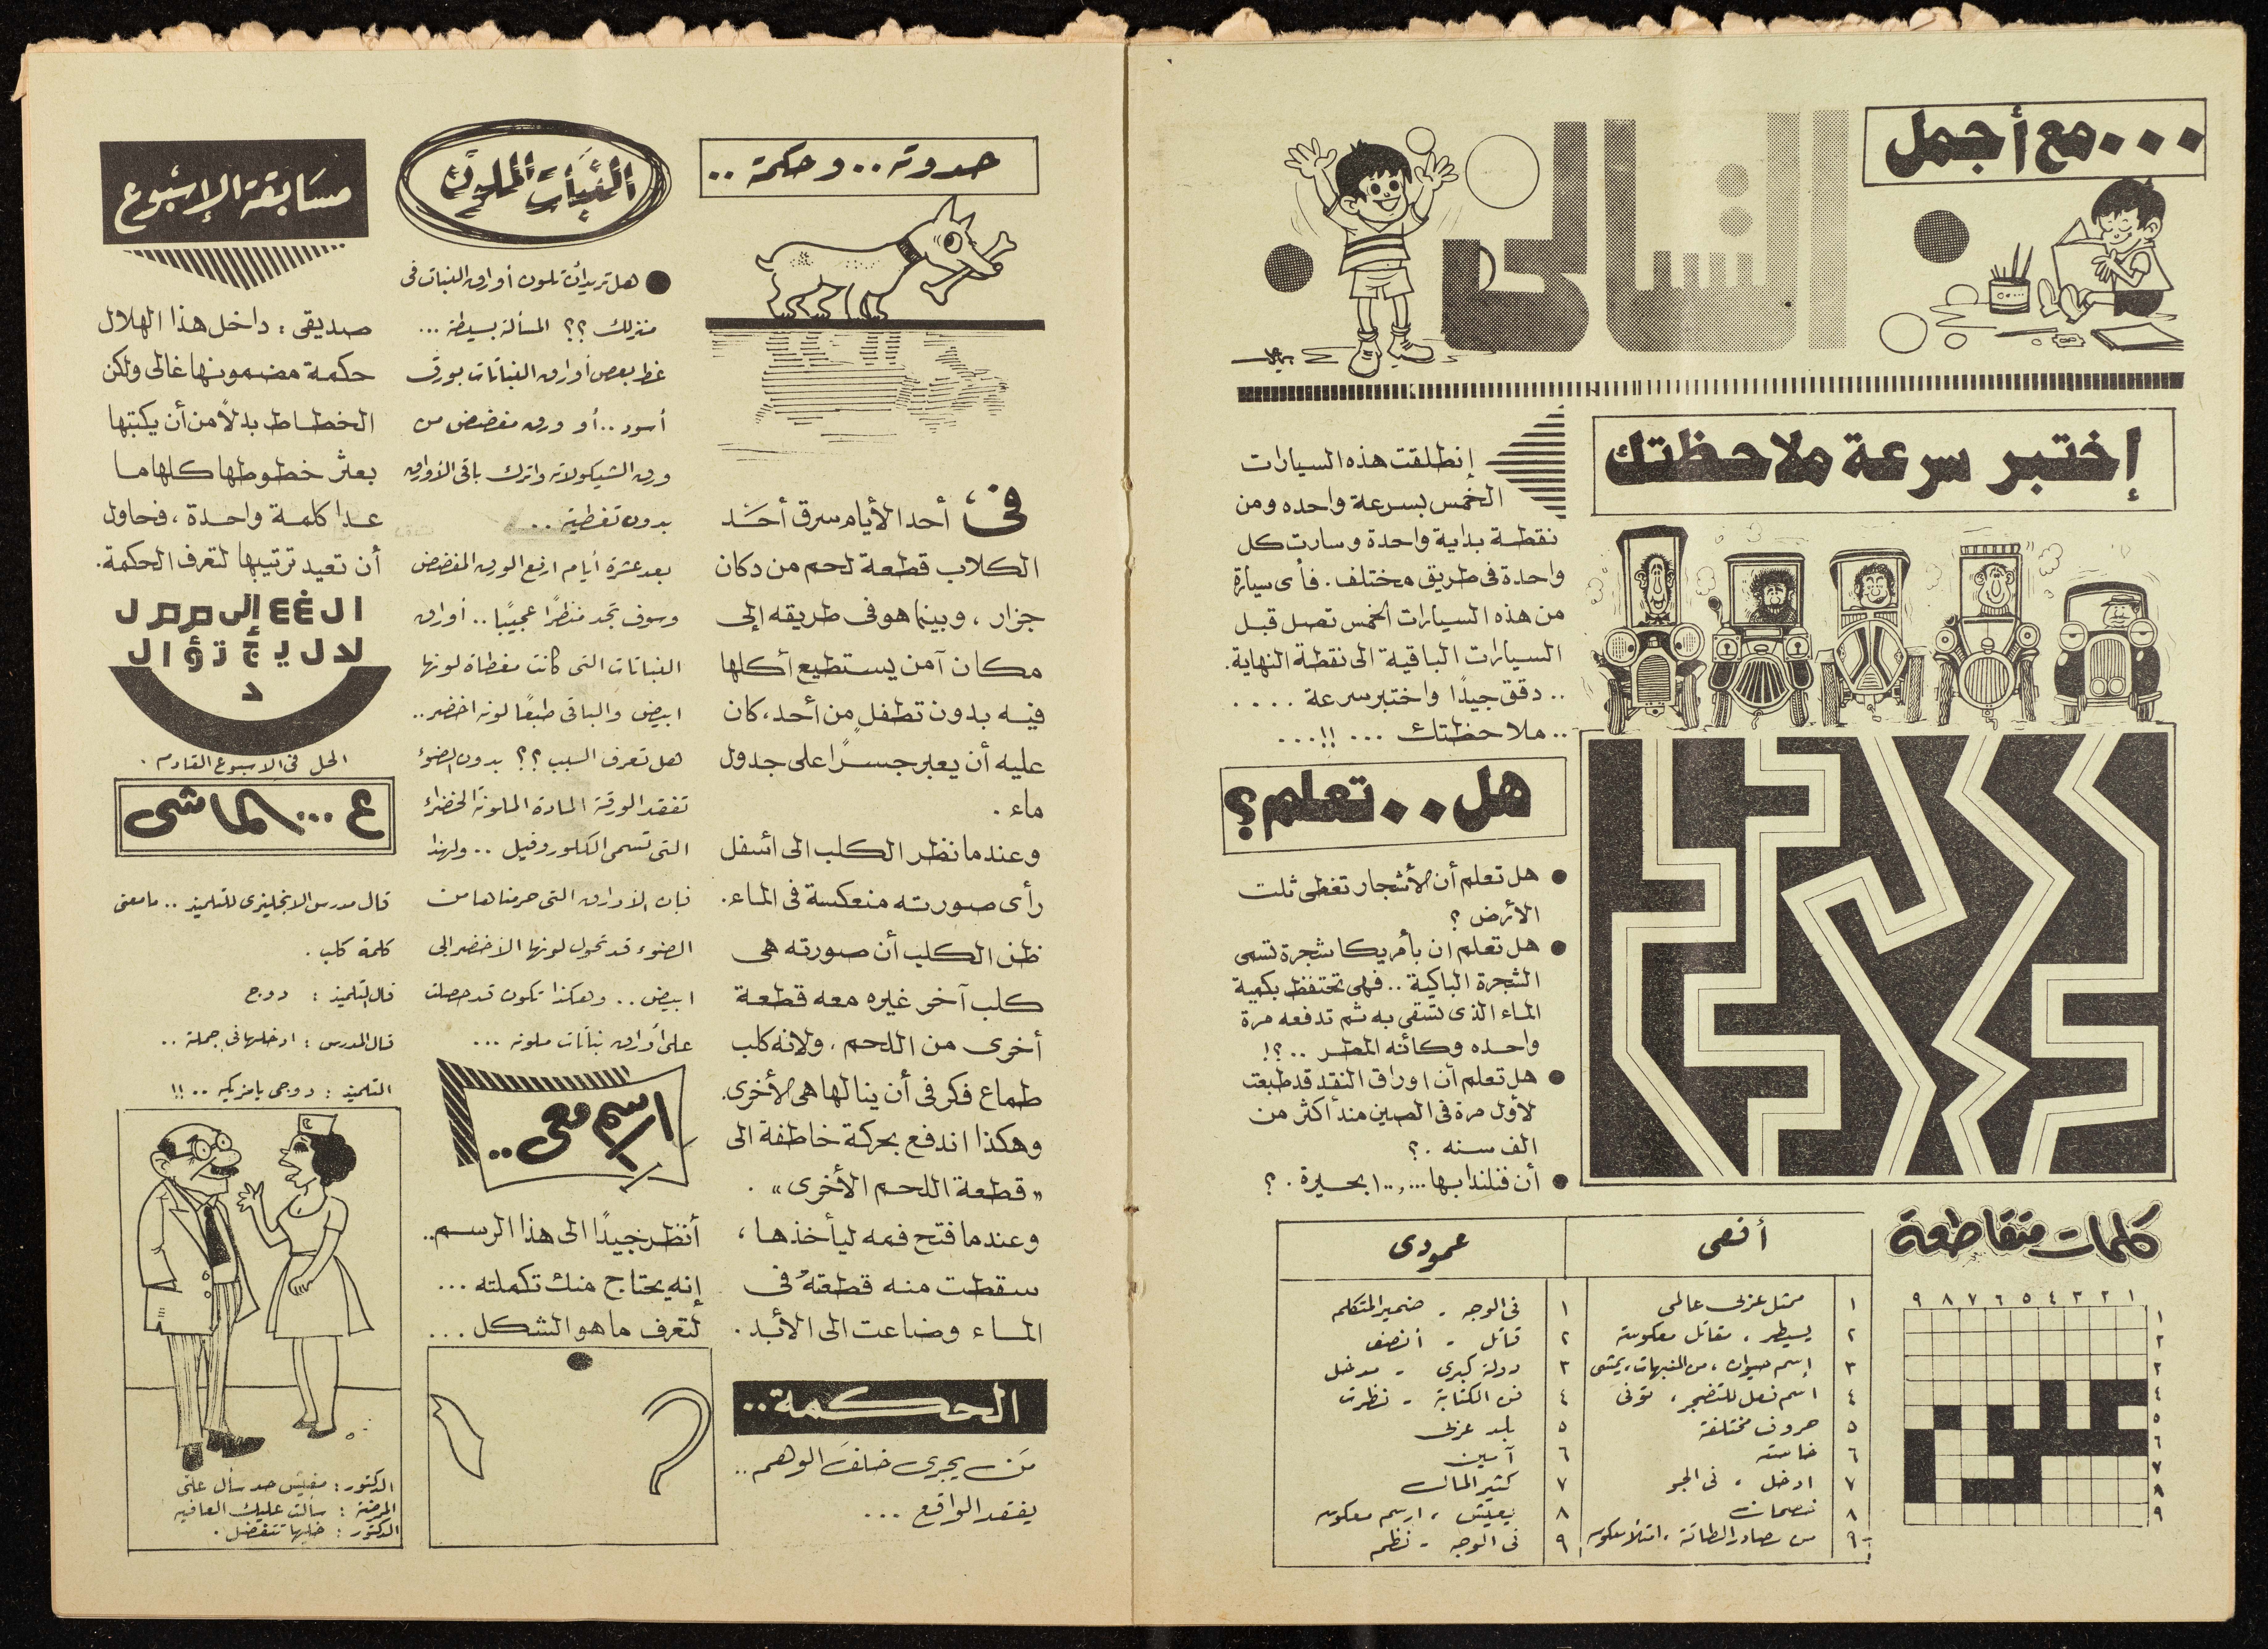 ...مع أجمل
التسالى
إختبر سرعة ملاحظتك
إنطلقت هذه السيارات
الخمس بسرعة واحده ومن
نقطة بداية واحدة وسارت كل
واحدة فى طريق مختلف. فأى سيارة
من هذه السيارات الخمس تصل قبل
السيارات الباقية الى نقطة النهاية.
.. دقق جيدًا واختبر سرعة ....
.. ملاحظتك ... !!...
هل .. تعلم؟
● هل تعلم أن الأشجار تغطى ثلث
الأرض ؟
● هل تعلم ان بأمريكا شجرة تسمى
الشجرة الباكية .. فهى تحتفظ بكمية
الماء الذى تسقى به ثم تدفعه مرة
واحده وكأنه المطر ..؟!
● هل تعلم أن اوراق النقد قد طبعت
لأول مرة فى الصين منذ أكثر من
الف سنه .؟
● أن فنلندا بها ... بحيرة . ؟
كلمات متقاطعة
١ ٢ ٣ ٤ ٥ ٦ ٧ ٨ ٩
١
٢
٣
٤
٥
٦
٧
٨
٩
أفقى
١ ممثل عربى عالمى
٢ يسيطر ، مقاتل معكوسة
٣ إسم حيوان ، من المنبهات ، يمشى
٤ اسم فعل للتضجر ، توفى
٥ حروف مختلفة
٦ خاسته
٧ ادخل ، فى الجو
٨ نصحان
٩ من مصادر الطاقة ، امتلأ معكوسه
عمودى
١ فى الوجه - ضمير المتكلم
٢ قاتل - أنصف
٣ دولة كبرى - مدخل
٤ فن الكتابة - نظرت
٥ بلد عربى
٦ آسين
٧ كثير المال
٨ يعيش ، ارسم معكوسه
٩ فى الوجه - نظم
حدوته .. وحكمة ..
فى أحد الأيام سرق أحَد
الكلاب قطعة لحم من دكان
جزار ، وبينما هو فى طريقه إلى
مكان آمن يستطيع أكلها
فيه بدون تطفلٍ من أحد، كان
عليه أن يعبر جسرًا على جدول
ماء .
وعندما نظر الكلب الى أسفل
رأى صورته منعكسة فى الماء.
ظن الكلب أن صورته هى
كلب آخر غيره معه قطعة
أخرى من اللحم ، ولأنه كلب
طماع فكر فى أن ينالها هى الأخرى.
وهكذا اندفع بحركة خاطفة الى
"قطعة اللحم الأخرى" .
وعندما فتح فمه ليأخذها ،
سقطت منه قطعتهُ فى
الماء وضاعت الى الأبد .
الحكمة..
مَن يجرى خلفَ الوهم ..
يفقد الواقع ...
النبَات الملوّن
● هل تريد أن تلون أوراق النبات فى
منزلك ؟؟ المسألة بسيطة ...
غط بعض أوراق النباتات بورق
أسود .. أو ورق مفضض من
ورق الشيكولاته واترك باقى الأوراق
بدون تغطية ..
بعد عشرة أيام ارفع الورق المفضض
وسوف تجد منظرًا عجيبًا .. أوراق
النباتات التى كانت مغطاة لونها
ابيض والباقى طبعًا لونه اخضر..
هل تعرف السبب ؟؟ بدون الضوء
تفقد الورقة المادة الملونة الخضراء
التى تسمى الكلوروفيل .. ولهذا
فإن الأوراق التى حرمناها من
الضوء قد تحول لونها الأخضر الى
ابيض .. وهكذا تكون قد حصلت
على أوراق نباتات ملونه ...
ارسم معى ..
أنظر جيدًا الى هذا الرسم..
إنه يحتاج منك تكملته ...
لتعرف ما هو الشكل ...
مسَابقة الإسبُوع
صديقى : داخل هذا الهلال
حكمة مضمونها غالى ولكن
الخطاط بدلاً من أن يكتبها
بعثر خطوطها كلها ما
عدا كلمة واحدة ، فحاول
أن تعيد ترتيبها لتعرف الحكمة.
ال غ ع ع إلى م م ر ل
لا ل ي ج ة ز ؤ ا ل
د
الحل فى الاسبوع القادم .
ع ... الماشى
قال مدرس الانجليزى للتلميذ .. ما معنى
كلمة كلب .
قال التلميذ : دوج
قال المدرس : ادخلها فى جملة ..
التلميذ : دوجى يا مزيكه .. !!
الدكتور : مفيش حد سأل علىّ
الممرضة : سألت عليك العافيه
الدكتور : خليها تتفضل .